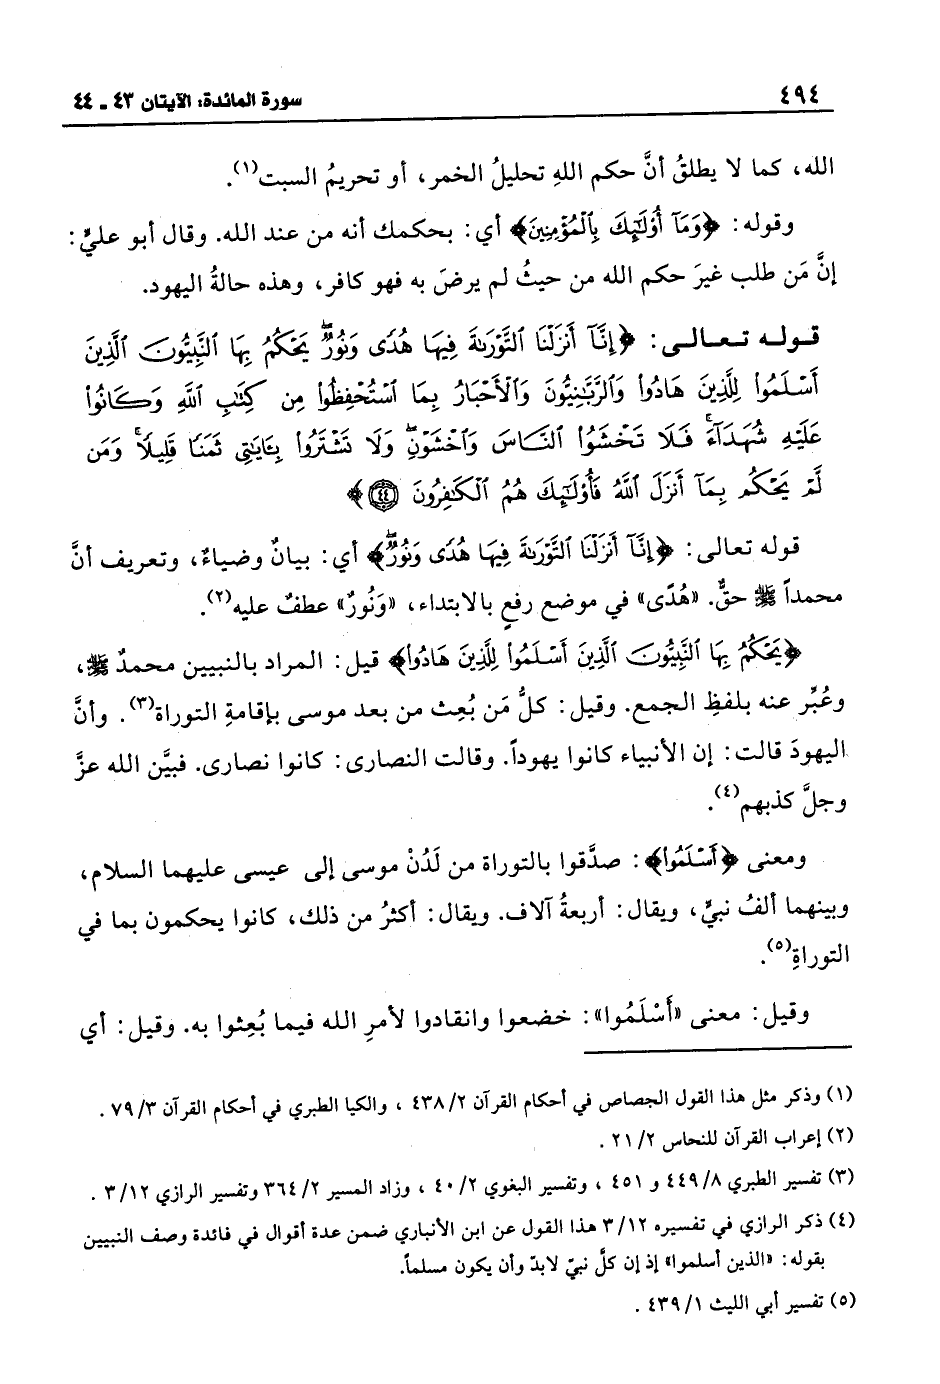 ٤٩٤
سورة المائدة: الآيتان ٤٣ ـ ٤٤
الله، كما لا يطلقُ أنَّ حكم اللهِ تحليلُ الخمر، أو تحريمُ السبت(١).
وقوله: ﴿وَمَآ أُوْلَٰٓئِكَ بِٱلْمُؤْمِنِينَ﴾ أي: بحكمك أنه من عند الله. وقال أبو عليٍّ:
إنَّ مَن طلب غيرَ حكم الله من حيثُ لم يرضَ به فهو كافر، وهذه حالةُ اليهود.
قوله تعالى: ﴿إِنَّآ أَنزَلْنَا ٱلتَّوْرَىٰةَ فِيهَا هُدًى وَنُورٌۚ يَحْكُمُ بِهَا ٱلنَّبِيُّونَ ٱلَّذِينَ
أَسْلَمُواْ لِلَّذِينَ هَادُواْ وَٱلرَّبَّٰنِيُّونَ وَٱلْأَحْبَارُ بِمَا ٱسْتُحْفِظُواْ مِن كِتَٰبِ ٱللَّهِ وَكَانُواْ
عَلَيْهِ شُهَدَآءَۚ فَلَا تَخْشَوُاْ ٱلنَّاسَ وَٱخْشَوْنِۖ وَلَا تَشْتَرُواْ بِـَٔايَٰتِى ثَمَنًا قَلِيلًاۚ وَمَن
لَّمْ يَحْكُم بِمَآ أَنزَلَ ٱللَّهُ فَأُوْلَٰٓئِكَ هُمُ ٱلْكَٰفِرُونَ ٤٤﴾
قوله تعالى: ﴿إِنَّآ أَنزَلْنَا ٱلتَّوْرَىٰةَ فِيهَا هُدًى وَنُورٌۚ﴾ أي: بيانٌ وضياءٌ، وتعريف أنَّ
محمداً ﷺ حقٌّ. «هُدًى» في موضع رفعٍ بالابتداء، «وَنُورٌ» عطفٌ عليه(٢).
﴿يَحْكُمُ بِهَا ٱلنَّبِيُّونَ ٱلَّذِينَ أَسْلَمُواْ لِلَّذِينَ هَادُواْ﴾ قيل: المراد بالنبيين محمدٌ ﷺ،
وعُبِّر عنه بلفظِ الجمع. وقيل: كلُّ مَن بُعِث من بعد موسى بإقامةِ التوراة(٣). وأنَّ
اليهودَ قالت: إن الأنبياء كانوا يهوداً. وقالت النصارى: كانوا نصارى. فبيَّن الله عزَّ
وجلَّ كذبهم(٤).
ومعنى ﴿أَسْلَمُواْ﴾: صدَّقوا بالتوراة من لَدُنْ موسى إلى عيسى عليهما السلام،
وبينهما ألفُ نبيٍّ، ويقال: أربعةُ آلاف. ويقال: أكثرُ من ذلك، كانوا يحكمون بما في
التوراةِ(٥).
وقيل: معنى «أَسْلَمُوا»: خضعوا وانقادوا لأمرِ الله فيما بُعِثوا به. وقيل: أي
(١) وذكر مثل هذا القول الجصاص في أحكام القرآن ٤٣٨/٢ ، والكيا الطبري في أحكام القرآن ٧٩/٣ .
(٢) إعراب القرآن للنحاس ٢١/٢ .
(٣) تفسير الطبري ٤٤٩/٨ و ٤٥١ ، وتفسير البغوي ٤٠/٢ ، وزاد المسير ٣٦٤/٢ وتفسير الرازي ٣/١٢ .
(٤) ذكر الرازي في تفسيره ٣/١٢ هذا القول عن ابن الأنباري ضمن عدة أقوال في فائدة وصف النبيين
بقوله: «الذين أسلموا» إذ إن كلَّ نبيّ لابدّ وأن يكون مسلماً.
(٥) تفسير أبي الليث ٤٣٩/١ .